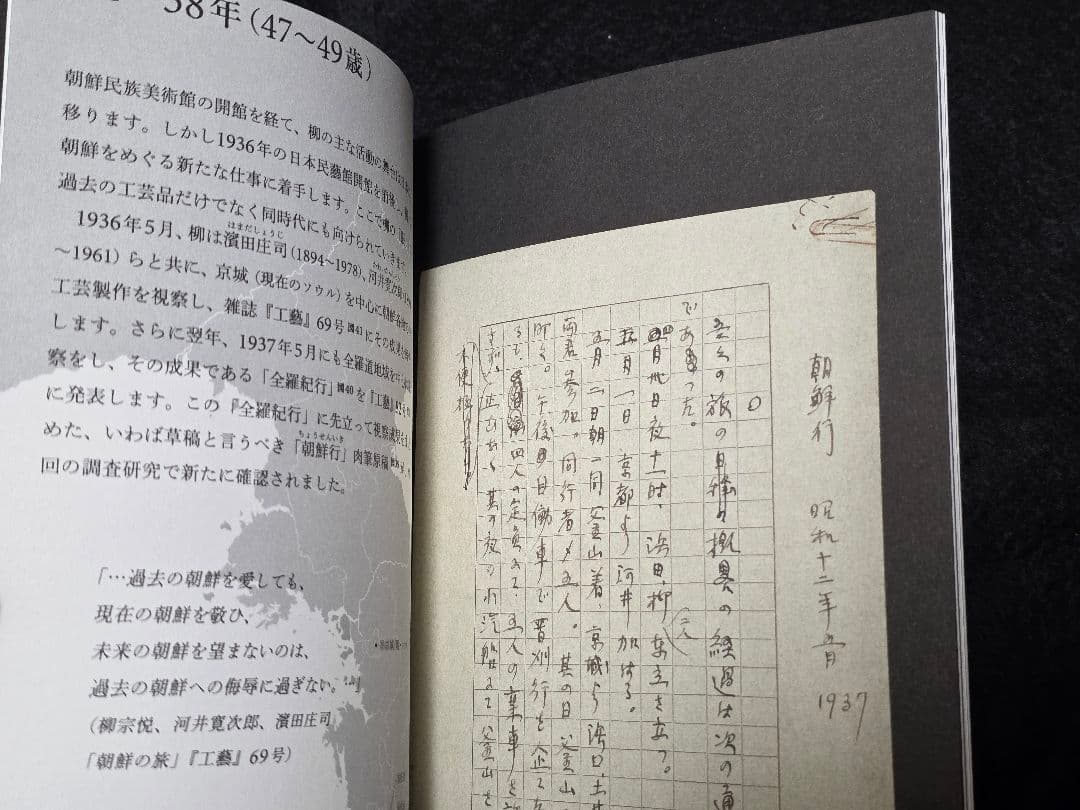 38年（47～49歳）
朝鮮民族美術館の開館を経て、柳の主な活動の舞台は
移ります。しかし1936年の日本民藝館開館を前後
朝鮮をめぐる新たな仕事に着手します。ここで柳の
過去の工芸品だけでなく同時代にも向けられていきます
はまだしょうじ
1936年5月、柳は濱田庄司（1894～1978）、河井寛次郎
～1961）らと共に、京城（現在のソウル）を中心に朝鮮各
工芸製作を視察し、雑誌『工藝』69号 図41 にその成果
します。さらに翌年、1937年5月にも全羅道地域を
察をし、その成果である「全羅紀行」図40 を『工藝』
に発表します。この『全羅紀行』に先立って視察
ちょうせんいき
めた、いわば草稿と言うべき「朝鮮行」肉筆原稿
回の調査研究で新たに確認されました。
「…過去の朝鮮を愛しても、
現在の朝鮮を敬ひ、
未来の朝鮮を望まないのは、
過去の朝鮮への侮辱に過ぎない。…」
（柳宗悦、河井寛次郎、濱田庄司
「朝鮮の旅」『工藝』69号）
朝鮮行　昭和十二年五月　1937
〇
吾々の旅の日程の概畧の経過は次の通
であった。
四月卅日夜十一時、浜田、柳二人東京を立つ。
五月一日 京都より河井加はる。
五月二日朝一同釜山着、京城より浜口、土井
両君参加。同行者〆五人。其の日釜山
町を。午後自働車で晋州行を企てた
るで、四人の定員にて、五人の乗車を
其の夜の小汽船にて釜山を